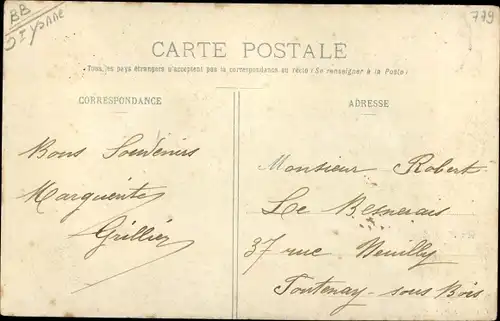 BB
779
CARTE POSTALE
Tous les pays étrangers n'acceptent pas la correspondance au recto (Se renseigner à la Poste)
CORRESPONDANCE
ADRESSE
Bons Souvenirs
Marguerite
Grillier
Monsieur Robert
Le Besnerais
37 rue Neuilly
Fontenay-sous Bois